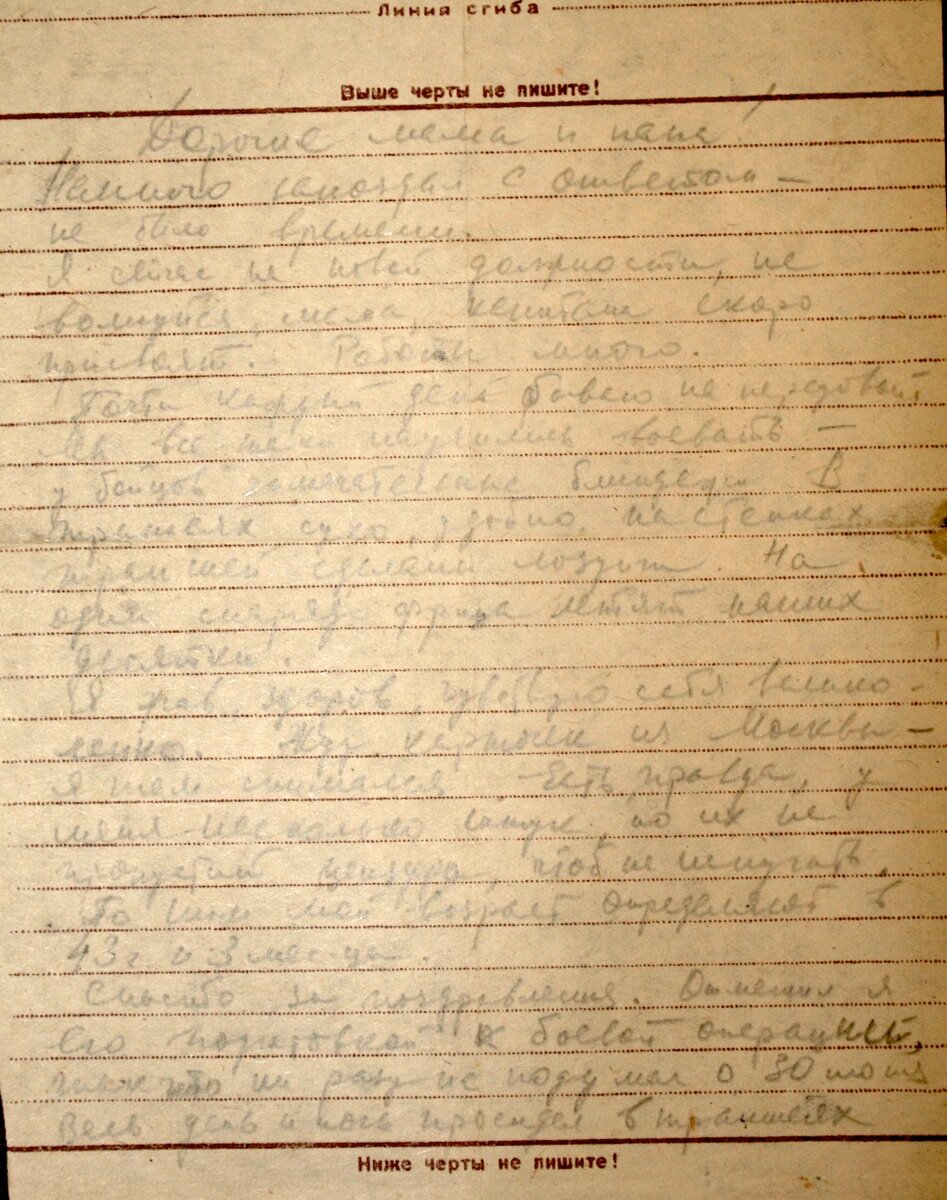 Линия сгиба
Выше черты не пишите!
Дорогие мама и папа!
Немного запоздал с ответом —
не было времени.
Я сейчас на новой должности, не
волнуйся, мама, капитана скоро
присвоят. Работы много.
Почти каждый день бываю на передовой.
Мы все таки научились воевать —
у бойцов замечательные блиндажи. В
траншеях сухо, удобно, на стенках
траншей сделаны лозунги. На
один снаряд фрица летят наших
десятки.
Я жив, здоров, чувствую себя велико-
лепно. Жду карточек из Москвы —
я там снимался. Есть, правда, у
меня несколько штук, но их не
пропустит цензура, чтоб не испугать.
По ним мой возраст определяют в
43 г. и 3 месяца.
Спасибо за поздравления. Отметил я
его подготовкой к боевой операции,
так что ни разу не подумал о 30
Весь день и ночь просидел в траншеях
Ниже черты не пишите!